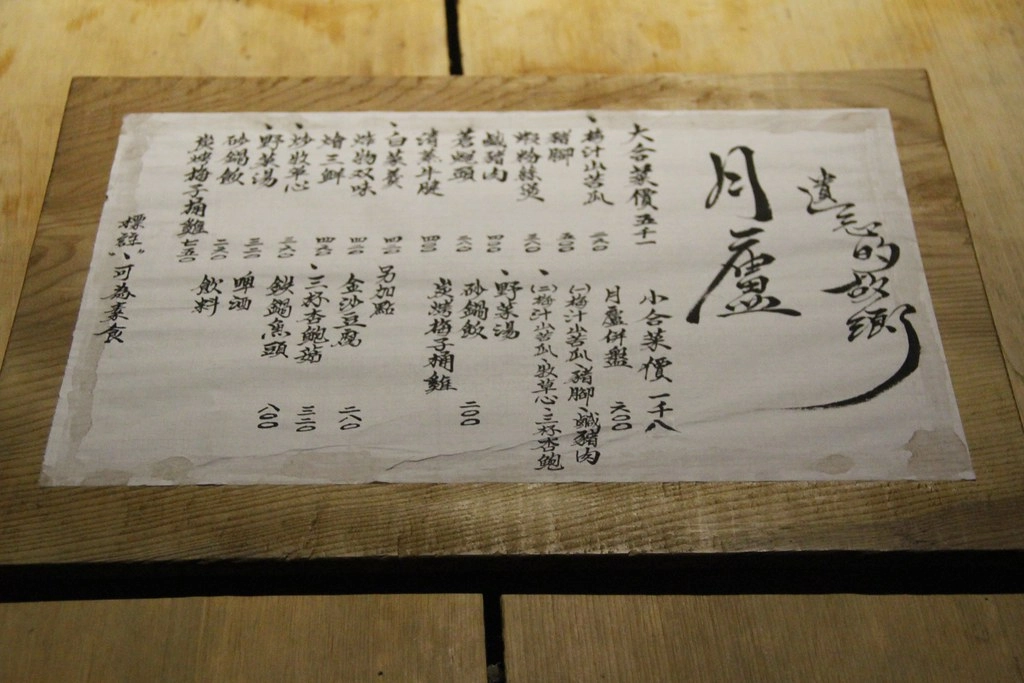 遺忘的故鄉
月廬
大合菜價五千
、梅汁小苦瓜 二八〇
豬腳 五〇〇
蝦粉絲煲 三八〇
鹹豬肉 四〇〇
蒼蠅頭 二八〇
清蒸牛腱 四〇〇
、白菜羹 四二〇
炸物双味 四二〇
燴三鮮 四五〇
、炒牧草心 二六〇
、野菜湯 三二〇
砂鍋飯 二二〇
炭烤梅子桶雞 七五〇
小合菜價 一千八
月廬併盤 六〇〇
(一)梅汁小苦瓜、豬腳、鹹豬肉
、(二)梅汁小苦瓜、牧草心、三杯杏鮑
、野菜湯
砂鍋飯 二〇〇
炭烤梅子桶雞
另加點
金沙豆腐 二八〇
、三杯杏鮑菇 三二〇
鮇鍋魚頭 八〇〇
啤酒
飲料
標註"、"可為素食